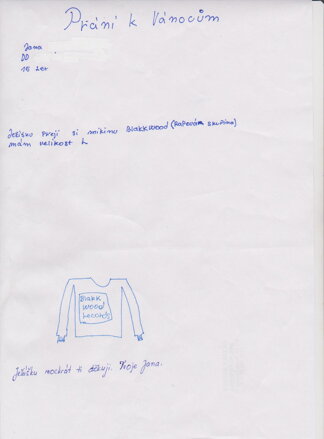 Přání k Vánocům
Jana
DD
15 let
Ježíšku přeji si mikinu Blakkwood (Rapová skupina)
mám velikost L
Blakk
wood
records
Ježíšku mockrát ti děkuji. Tvoje Jana.